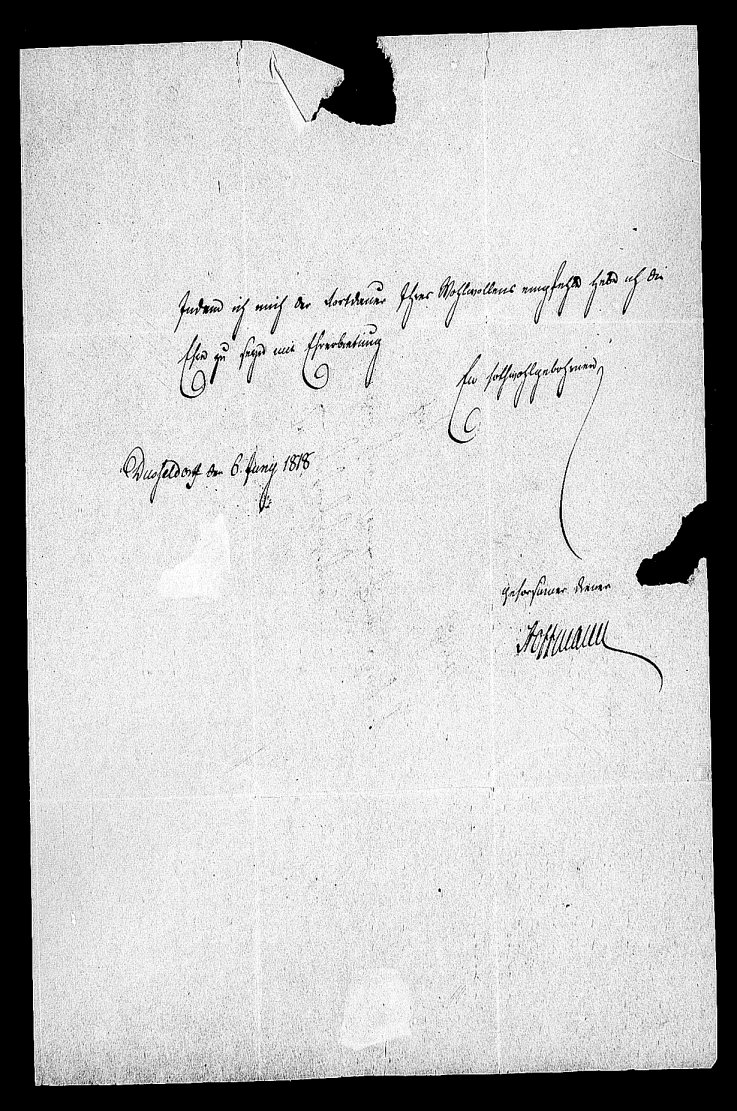 Indem ich mich der Fortdauer Ihres Wohlwollens empfehle habe ich die
Ehre zu seyn mit Ehrerbietung
Ew Hochwohlgebohrnen
Dusseldorf den 6. Juny 1818
gehorsamer Diener
Hoffmann